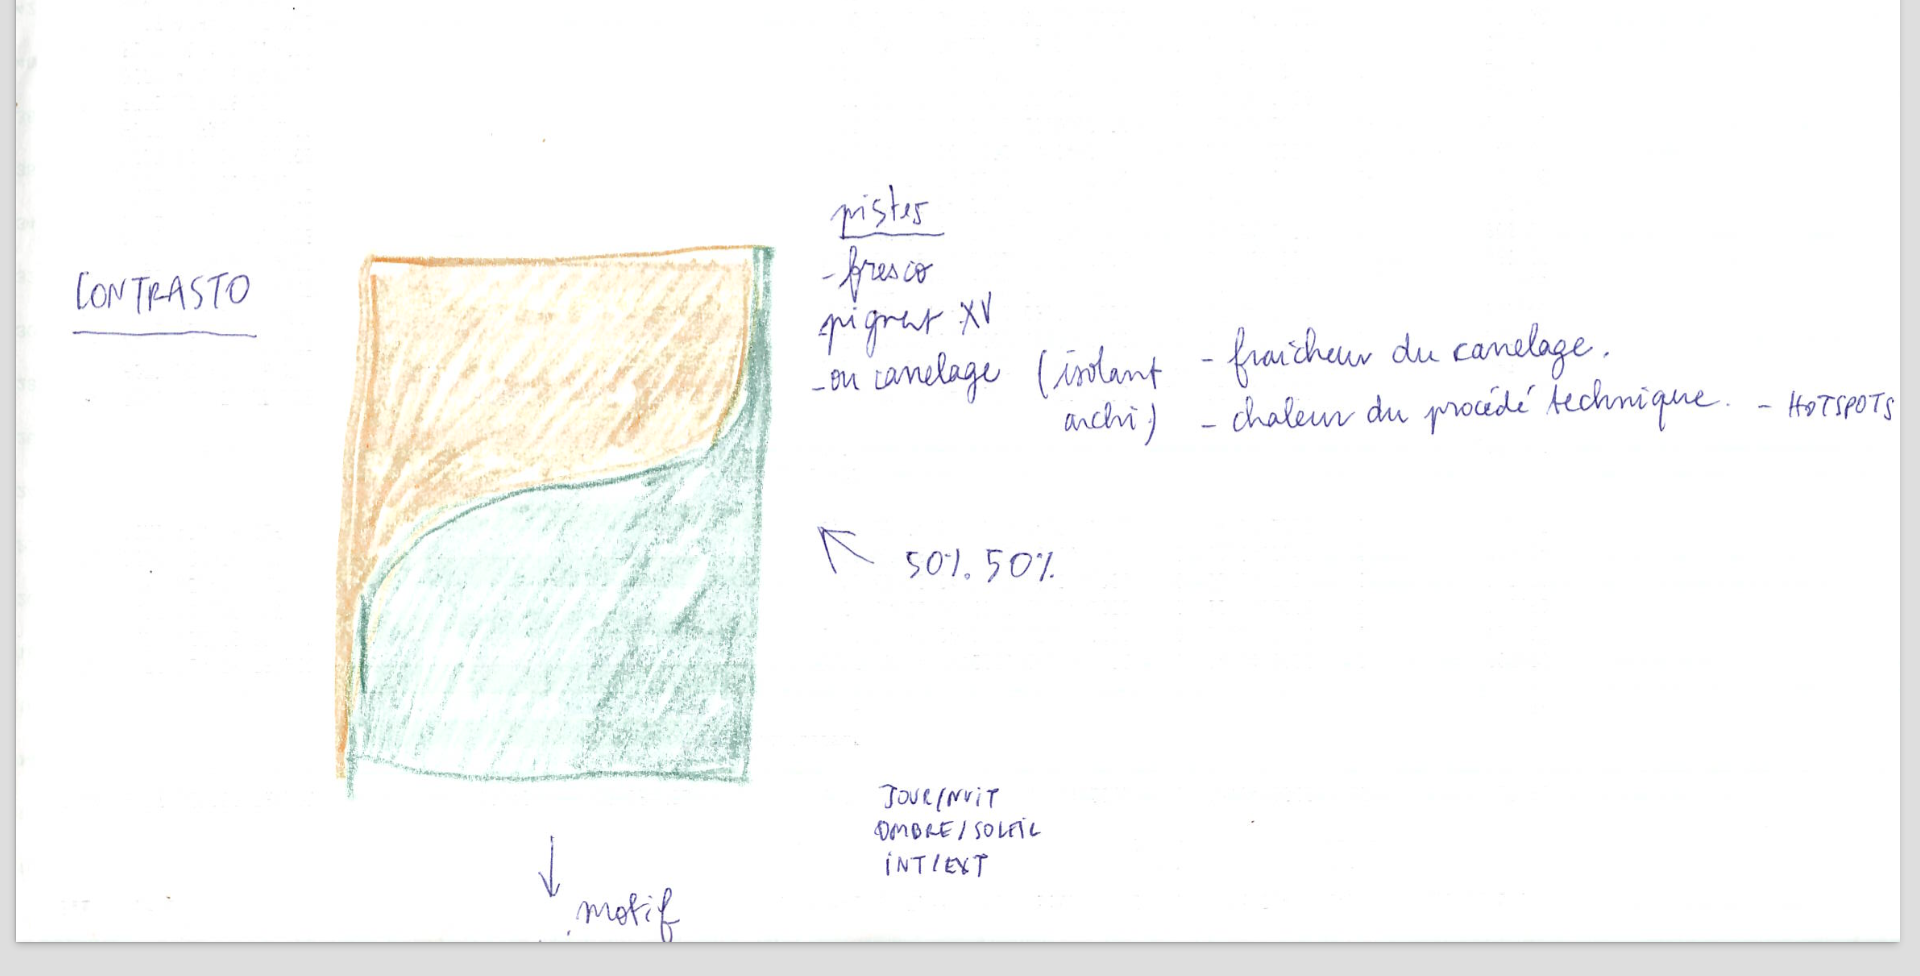 CONTRASTO
pistes
- fresco
pigment XV
- ou canelage (isolant archi)
- fraîcheur du canelage.
- chaleur du procédé technique. - HOTSPOTS
50%. 50%
JOUR/NUIT
OMBRE/SOLEIL
INT/EXT
motif